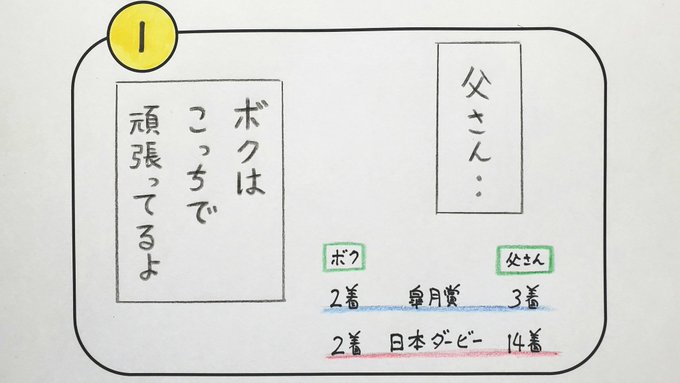 1
父さん・・
ボクは
こっちで
頑張ってるよ
ボク 父さん
2着 皐月賞 3着
2着 日本ダービー 14着